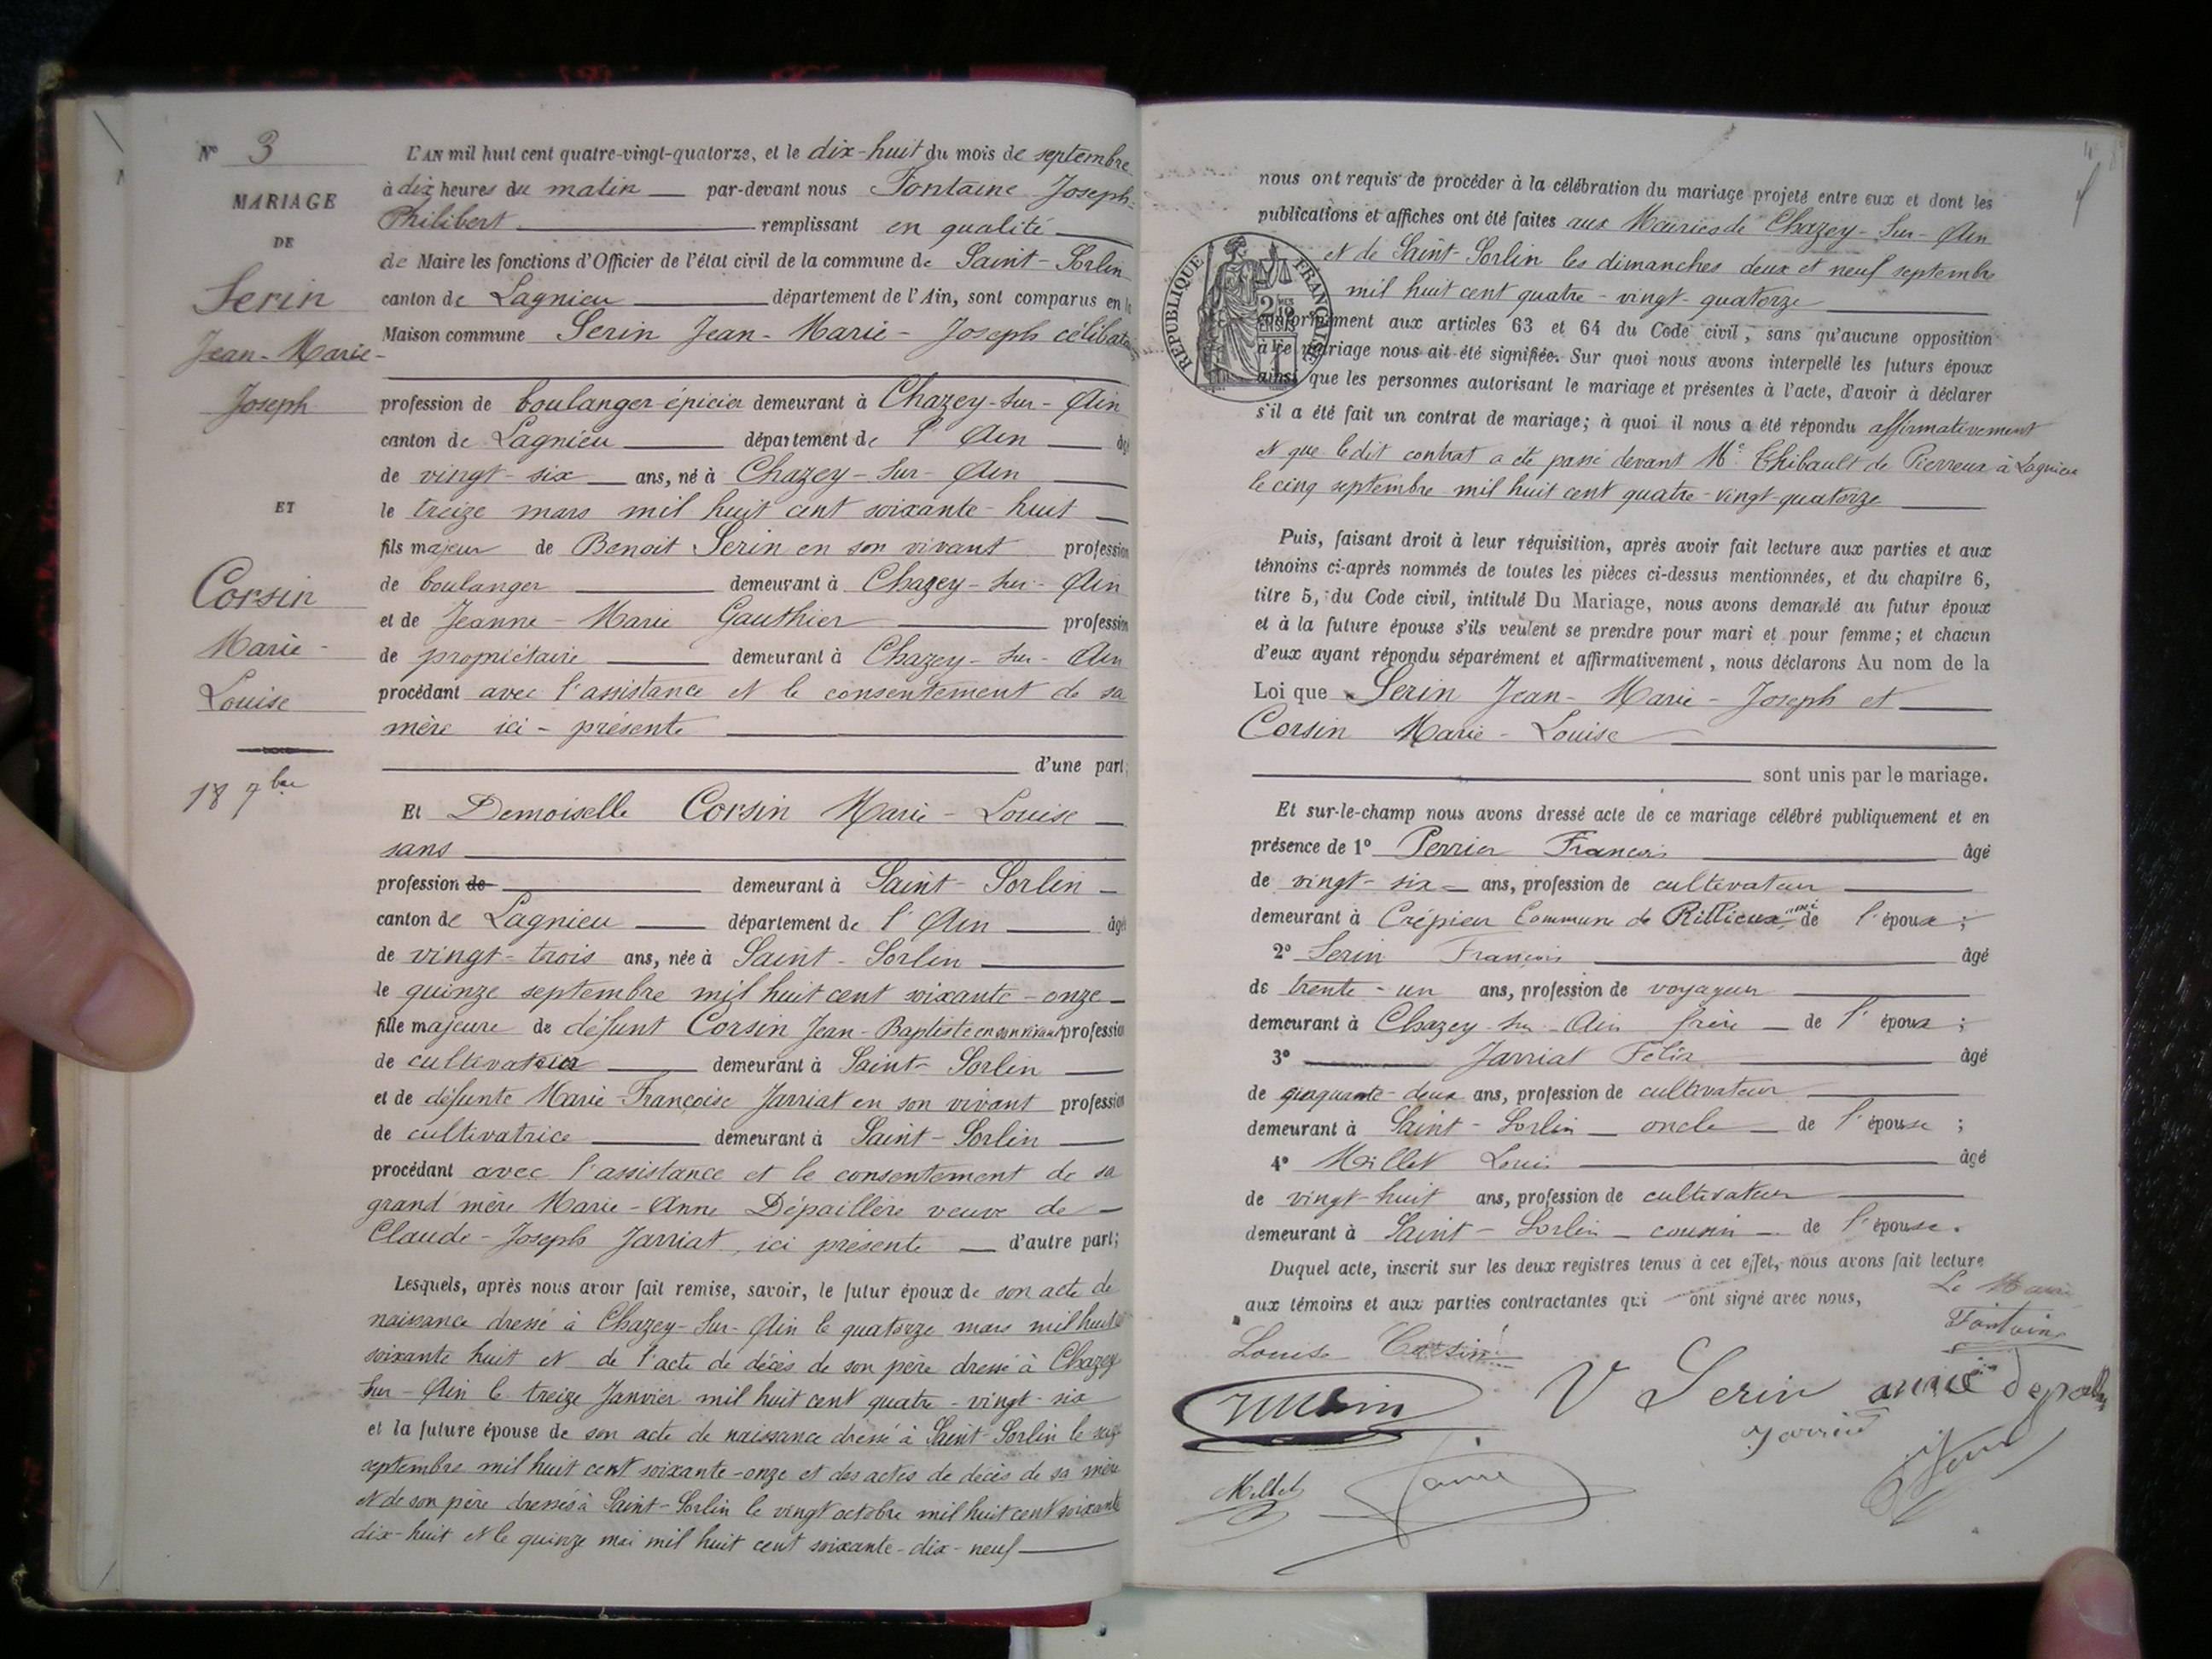 N° 3
MARIAGE
DE
Serin
Jean-Marie-
Joseph
ET
Corsin
Marie-
Louise
18 7bre
L'AN mil huit cent quatre-vingt-quatorze, et le dix-huit du mois de septembre
à dix heures du matin par-devant nous Fontaine Joseph-
Philibert remplissant en qualité
de Maire les fonctions d'Officier de l'état civil de la commune de Saint-Sorlin
canton de Lagnieu département de l'Ain, sont comparus en la
Maison commune Serin Jean-Marie-Joseph célibataire
profession de boulanger-épicier demeurant à Chazey-sur-Ain
canton de Lagnieu département de l'Ain âgé
de vingt-six ans, né à Chazey-sur-Ain
le treize mars mil huit cent soixante-huit
fils majeur de Benoit Serin en son vivant profession
de boulanger demeurant à Chazey-sur-Ain
et de Jeanne-Marie Gauthier profession
de propriétaire demeurant à Chazey-sur-Ain
procédant avec l'assistance et le consentement de sa
mère ici-présente
d'une part;
Et Demoiselle Corsin Marie-Louise
sans
profession de demeurant à Saint-Sorlin
canton de Lagnieu département de l'Ain âgée
de vingt-trois ans, née à Saint-Sorlin
le quinze septembre mil huit cent soixante-onze
fille majeure de défunt Corsin Jean-Baptiste en son vivant profession
de cultivateur demeurant à Saint-Sorlin
et de défunte Marie-Françoise Jarriat en son vivant profession
de cultivatrice demeurant à Saint-Sorlin
procédant avec l'assistance et le consentement de sa
grand'mère Marie-Anne Dépaillère veuve de
Claude-Joseph Jarriat, ici présente d'autre part;
Lesquels, après nous avoir fait remise, savoir, le futur époux de son acte de
naissance dressé à Chazey-sur-Ain le quatorze mars mil huit cent
soixante huit et de l'acte de décès de son père dressé à Chazey
sur-Ain le treize Janvier mil huit cent quatre-vingt-six
et la future épouse de son acte de naissance dressé à Saint-Sorlin le seize
septembre mil huit cent soixante-onze et des actes de décès de sa mère
et de son père dressés à Saint-Sorlin le vingt octobre mil huit cent soixante
dix-huit et le quinze mai mil huit cent soixante-dix-neuf
nous ont requis de procéder à la célébration du mariage projeté entre eux et dont les
publications et affiches ont été faites aux Mairies de Chazey-sur-Ain
et de Saint-Sorlin les dimanches deux et neuf septembre
mil huit cent quatre-vingt-quatorze
RÉPUBLIQUE FRANÇAISE
conformément aux articles 63 et 64 du Code civil, sans qu'aucune opposition
à ce mariage nous ait été signifiée. Sur quoi nous avons interpellé les futurs époux
ainsi que les personnes autorisant le mariage et présentes à l'acte, d'avoir à déclarer
s'il a été fait un contrat de mariage; à quoi il nous a été répondu affirmativement
et que ledit contrat a été passé devant Me Thibault de Pierreux à Lagnieu
le cinq septembre mil huit cent quatre-vingt-quatorze
Puis, faisant droit à leur réquisition, après avoir fait lecture aux parties et aux
témoins ci-après nommés de toutes les pièces ci-dessus mentionnées, et du chapitre 6,
titre 5, du Code civil, intitulé Du Mariage, nous avons demandé au futur époux
et à la future épouse s'ils veulent se prendre pour mari et pour femme; et chacun
d'eux ayant répondu séparément et affirmativement, nous déclarons Au nom de la
Loi que Serin Jean-Marie-Joseph et
Corsin Marie-Louise
sont unis par le mariage.
Et sur-le-champ nous avons dressé acte de ce mariage célébré publiquement et en
présence de 1° Perrier François âgé
de vingt-six ans, profession de cultivateur
demeurant à Crépieu Commune de Rillieux, ami de l'époux;
2° Serin François âgé
de trente-un ans, profession de voyageur
demeurant à Chazey-sur-Ain frère de l'époux;
3° Jarriat Félix âgé
de cinquante-deux ans, profession de cultivateur
demeurant à Saint-Sorlin oncle de l'épouse;
4° Millet Louis âgé
de vingt-huit ans, profession de cultivateur
demeurant à Saint-Sorlin cousin de l'épouse.
Duquel acte, inscrit sur les deux registres tenus à cet effet, nous avons fait lecture
aux témoins et aux parties contractantes qui ont signé avec nous,
Le Maire
Fontaine
Louise Corsin
V Serin
Jarriat
Millet